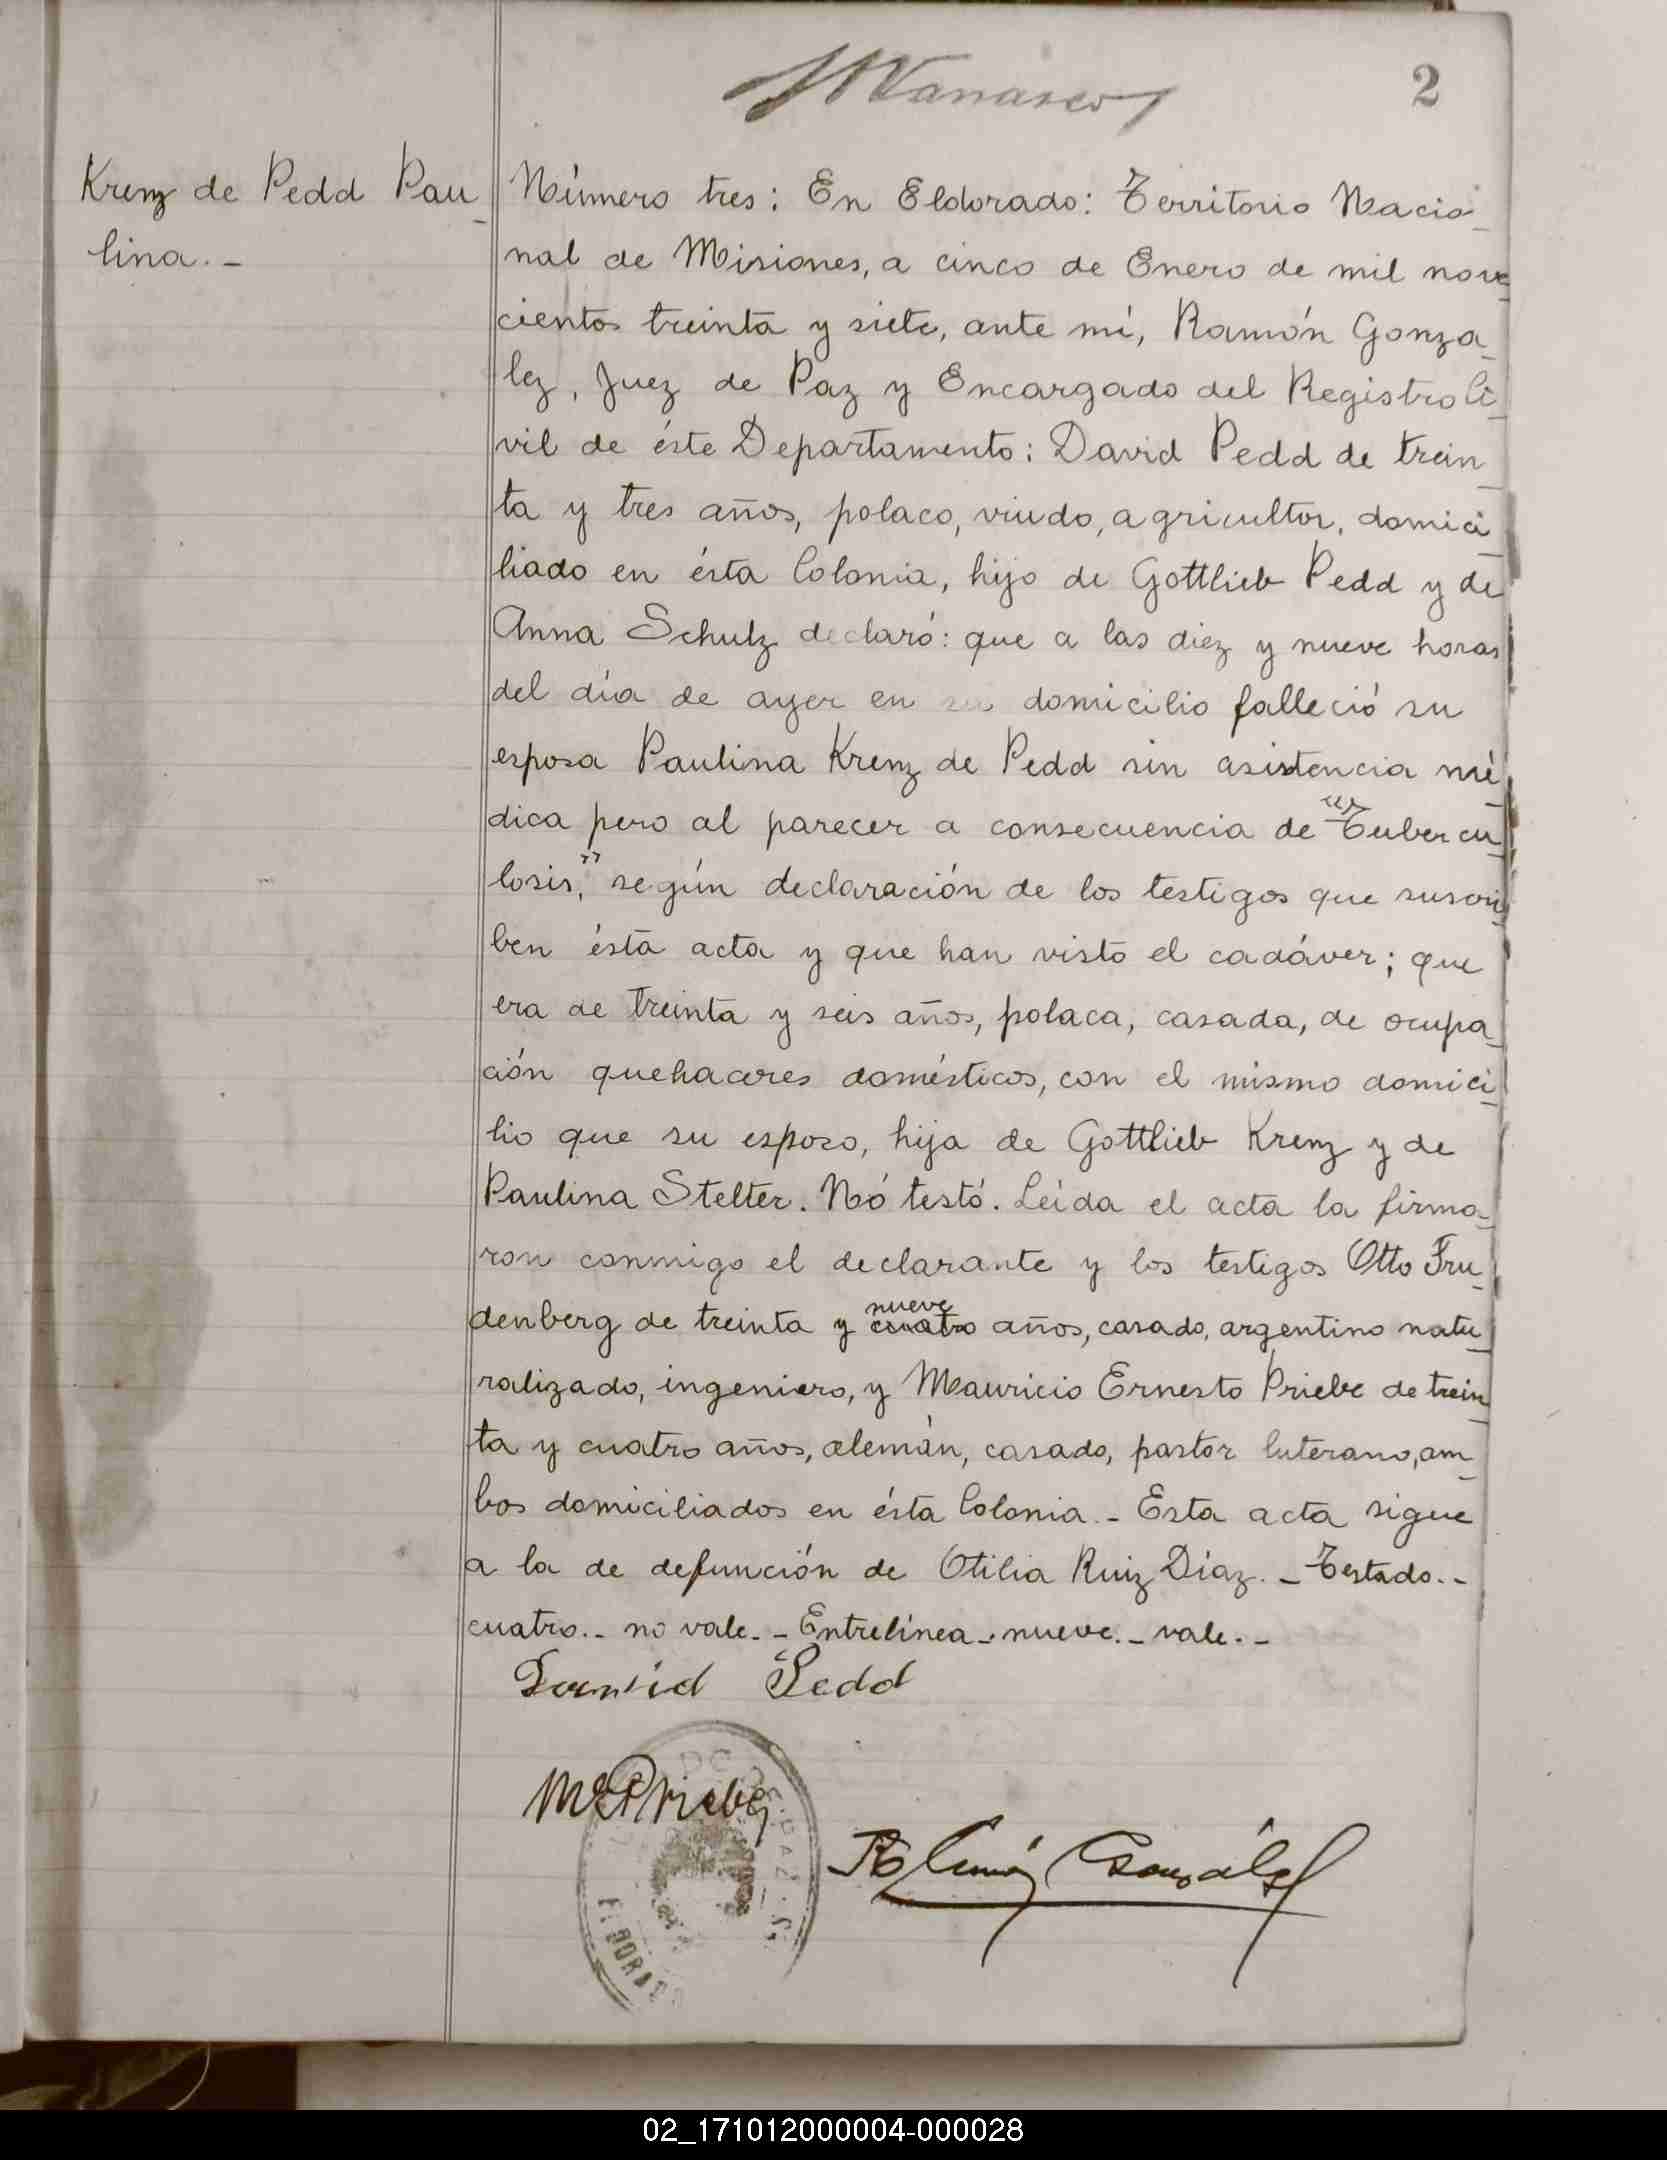 2
Krenz de Pedd Pau-
lina.-
Número tres: En Eldorado: Territorio Nacio-
nal de Misiones, a cinco de Enero de mil nove-
cientos treinta y siete, ante mí, Ramón Gonza-
lez, Juez de Paz y Encargado del Registro Ci-
vil de éste Departamento: David Pedd de trein-
ta y tres años, polaco, viudo, agricultor, domici-
liado en ésta Colonia, hijo de Gottlieb Pedd y de
Anna Schulz declaró: que a las diez y nueve horas
del día de ayer en su domicilio falleció su
esposa Paulina Krenz de Pedd sin asistencia mé-
dica pero al parecer a consecuencia de "Tubercu-
losis," según declaración de los testigos que suscri-
ben ésta acta y que han visto el cadáver; que
era de treinta y seis años, polaca, casada, de ocupa-
ción quehaceres domésticos, con el mismo domici-
lio que su esposo, hija de Gottlieb Krenz y de
Paulina Stelter. Nó testó. Leída el acta la firma-
ron conmigo el declarante y los testigos Otto Fru-
nueve
denberg de treinta y cuatro años, casado, argentino natu-
ralizado, ingeniero, y Mauricio Ernesto Priebe de trein-
ta y cuatro años, alemán, casado, pastor luterano, am-
bos domiciliados en ésta Colonia.- Esta acta sigue
a la de defunción de Otilia Ruiz Díaz.- Testado.-
cuatro.- no vale.- Entrelínea.- nueve.- vale.-
David Pedd
MEPriebe
Ramón González
ELDORADO
02_171012000004-000028